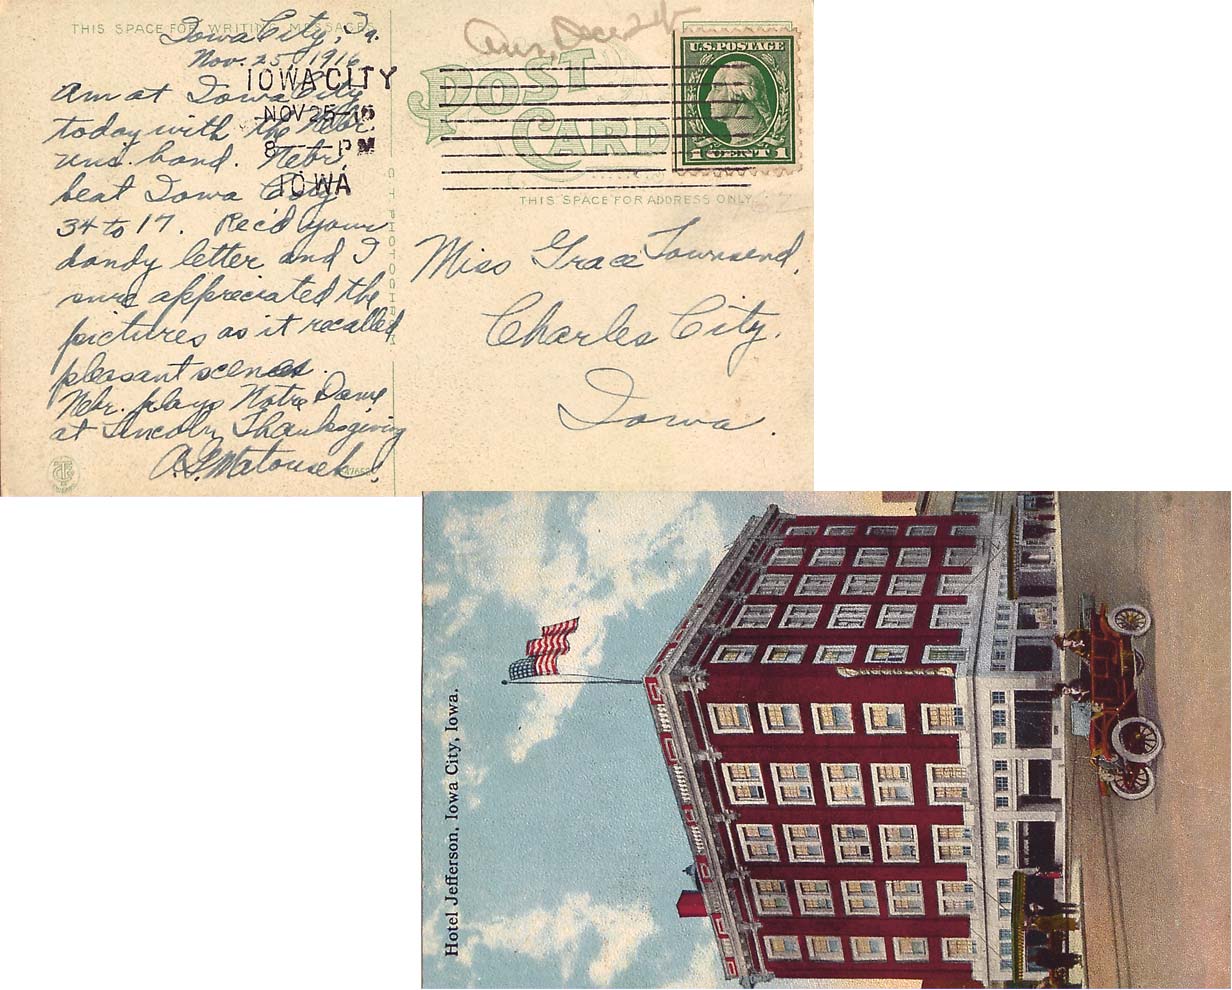 THIS SPACE FOR WRITING MESSAGES
Iowa City, Ia.
Nov. 25, 1916
Am at Iowa City
today with the Nebr.
uni. band. Nebr.
beat Iowa City
34 to 17. Rec'd your
dandy letter and I
sure appreciated the
pictures as it recalled
pleasant scenes.
Nebr. plays Notre Dame
at Lincoln Thanksgiving
A.L. Matousek.
IOWA CITY
NOV 25-16
8 — PM
IOWA
CT PHOTOCHROM
Ans. Dec. 24
POST
CARD
U.S. POSTAGE
1 CENT 1
THIS SPACE FOR ADDRESS ONLY
Miss Grace Townsend,
Charles City,
Iowa.
Hotel Jefferson, Iowa City, Iowa.